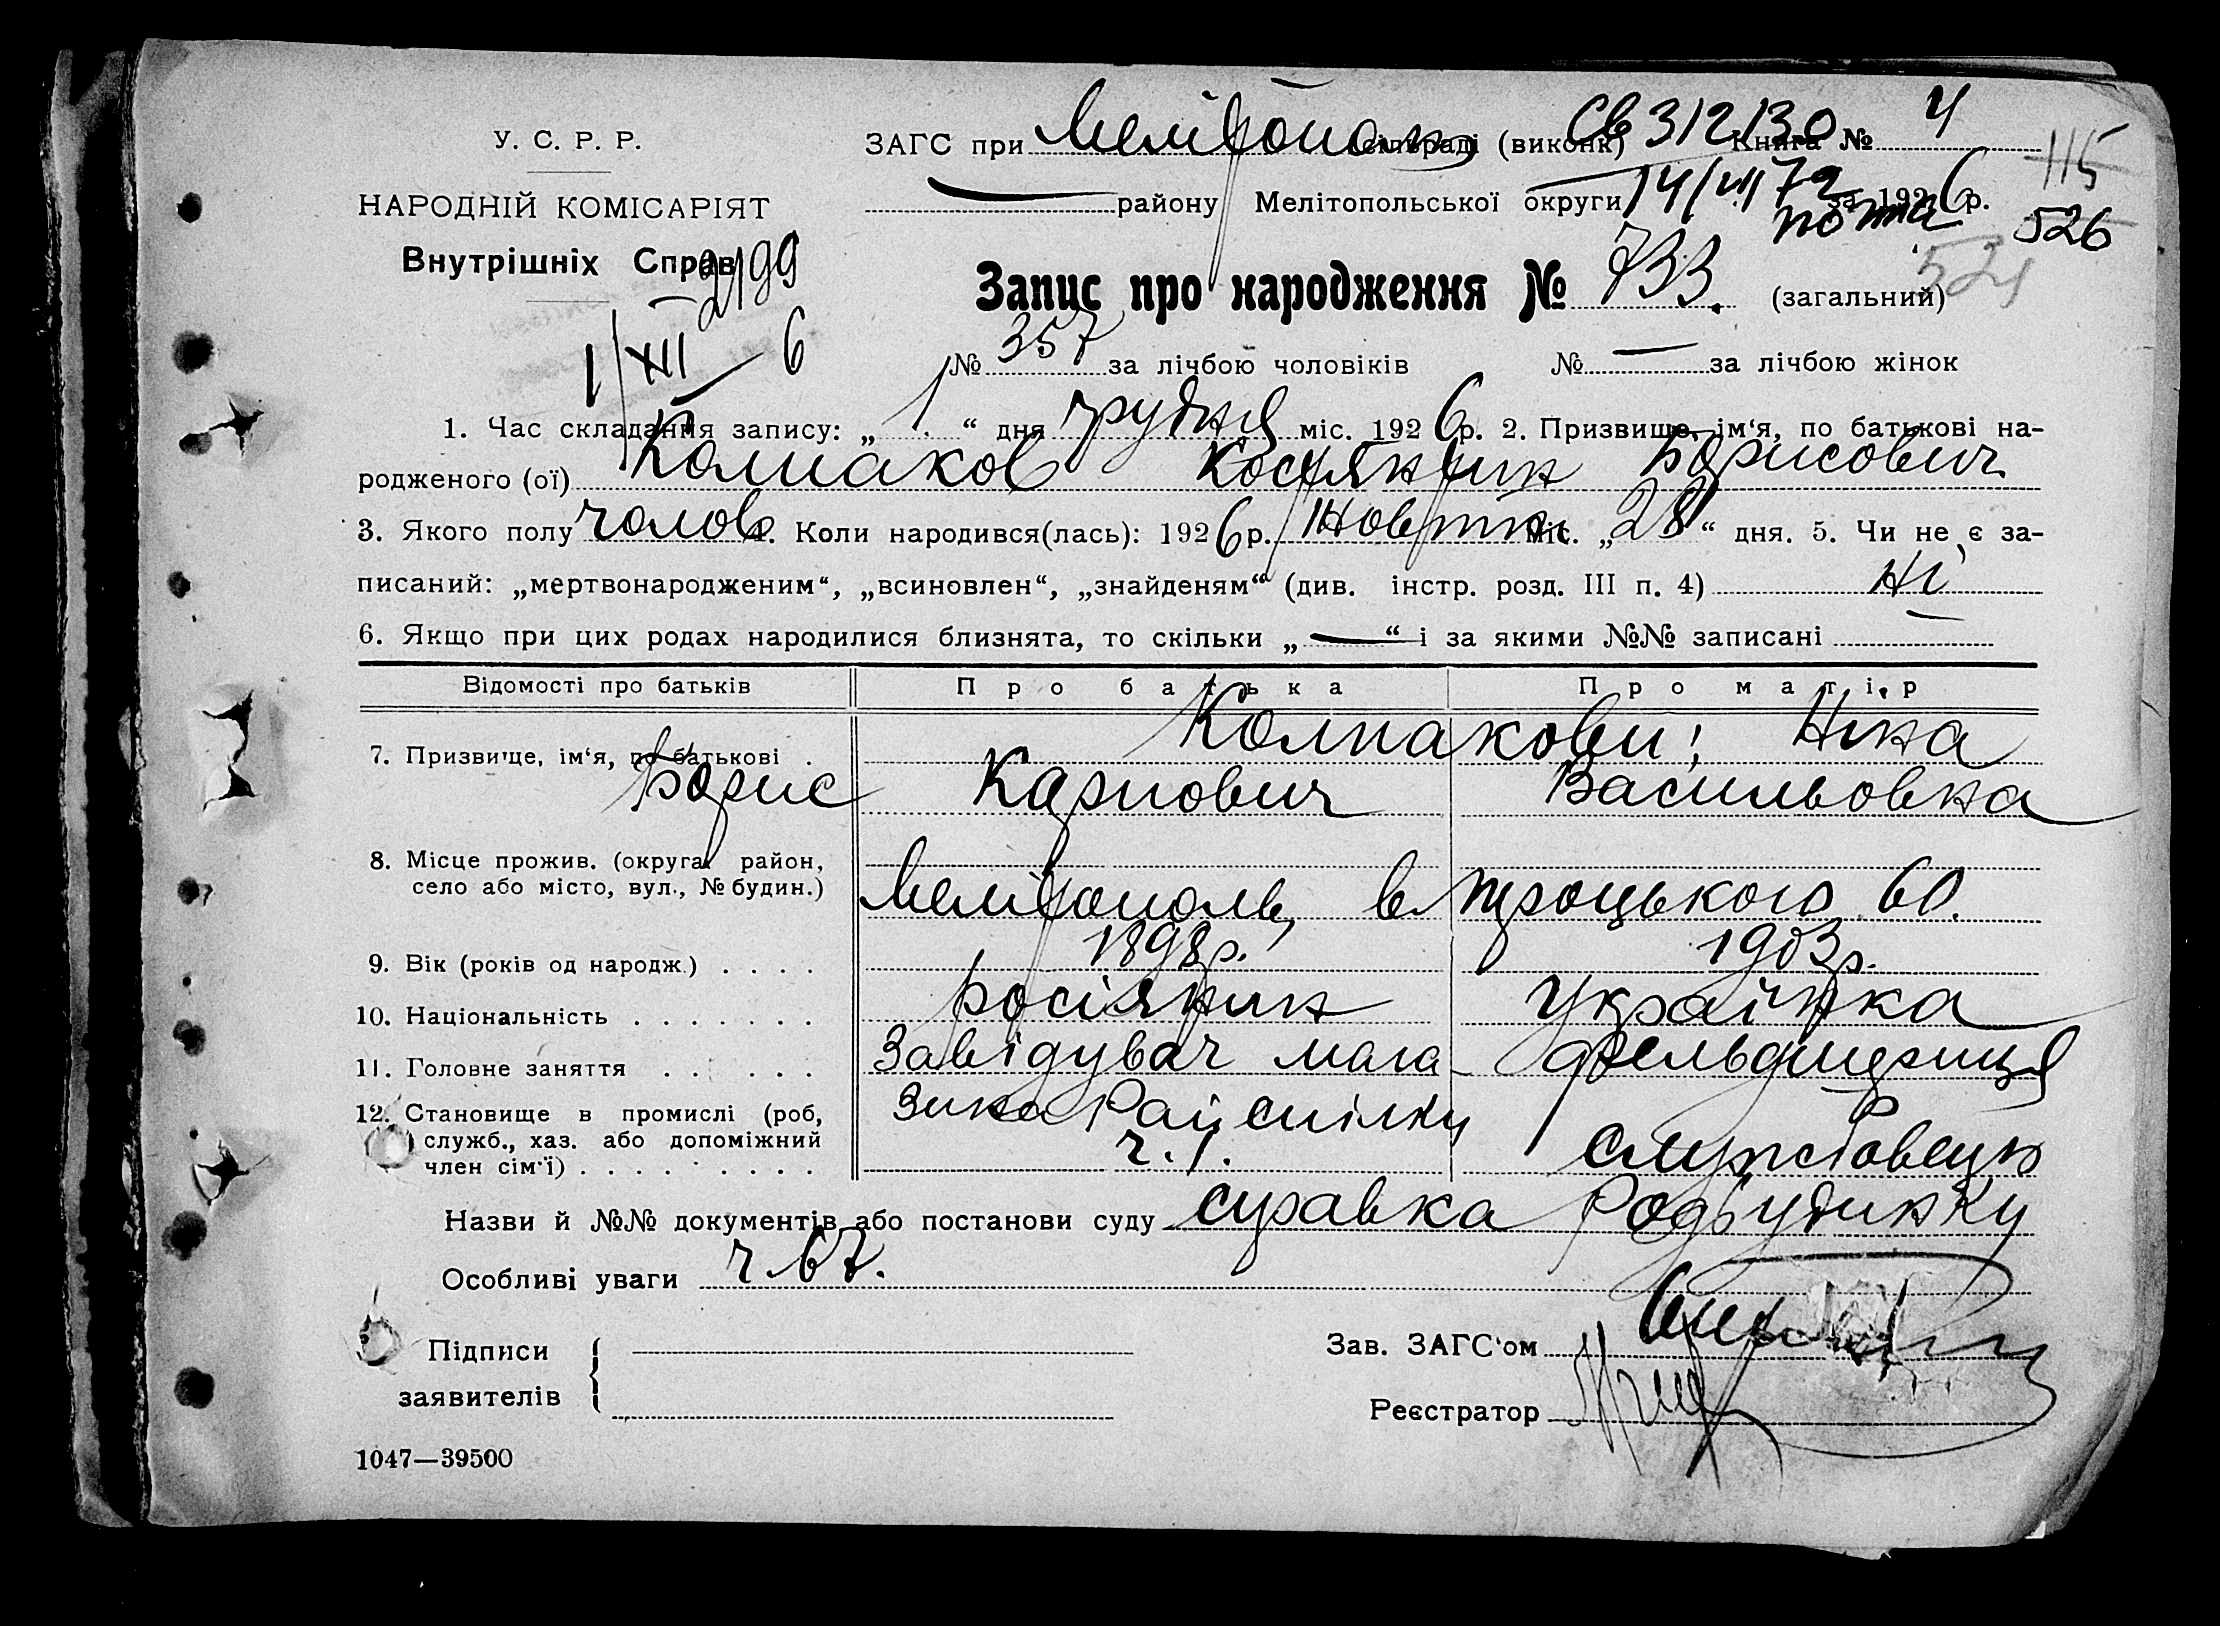 У. С. Р. Р.
НАРОДНІЙ КОМІСАРІЯТ
Внутрішніх Справ
2199
1/XII – 6
ЗАГС при Мелітополь сільраді (виконк) Книга № 4
Св 312130
115
району Мелітопольської округи за 1926 р.
14/VII 72
почта
526
521
Запис про народження № 733. (загальний)
№ 357 за лічбою чоловіків № — за лічбою жінок
1. Час складання запису: „ 1 “ дня грудня міс. 1926 р. 2. Призвище, ім‘я, по батькові на-
родженого (ої) Колпаков Костянтин Борисович
3. Якого полу чолов. 4. Коли народився(лась): 1926 р. Жовтня міс. „ 28 “ дня. 5. Чи не є за-
писаний: „мертвонародженим“, „всиновлен“, „знайденям“ (див. інстр. розд. III п. 4) Ні
6. Якщо при цих родах народилися близнята, то скільки „ — “ і за якими №№ записані
Відомості про батьків Про батька Про матір
7. Призвище, ім‘я, по батькові . Колпакови: Ніна
Борис Карпович Васильовна
8. Місце прожив. (округа, район,
село або місто, вул., № будин.) Мелітополь, в Троцького 60.
9. Вік (років од народж.) . . . . 1898 р. 1903 р.
10. Національність . . . . . . . росіянин Українка
11. Головне заняття . . . . . . Завідувач мага- фельдшериця
12. Становище в промислі (роб, зина Райспілки
служб., хаз. або допоміжний ч. 1. службовець
член сім‘ї) . . . . . . . . .
Назви й №№ документів або постанови суду справка Родбудинку
Особливі уваги ч 67.
Підписи
заявителів
Зав. ЗАГС‘ом
Реєстратор
1047—39500